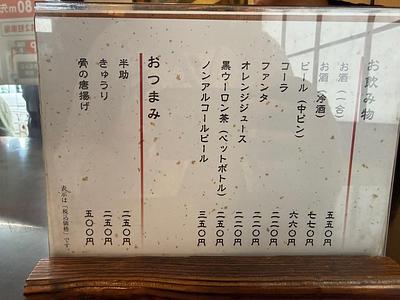 お飲み物
お酒（一合） 五五〇円
お酒（冷酒） 七七〇円
ビール（中ビン） 六六〇円
コーラ 二二〇円
ファンタ 二二〇円
オレンジジュース 二二〇円
黒ウーロン茶（ペットボトル） 二五〇円
ノンアルコールビール 三五〇円
おつまみ
半助 二五〇円
きゅうり 二五〇円
骨の唐揚げ 五〇〇円
表示は「税込価格」です。